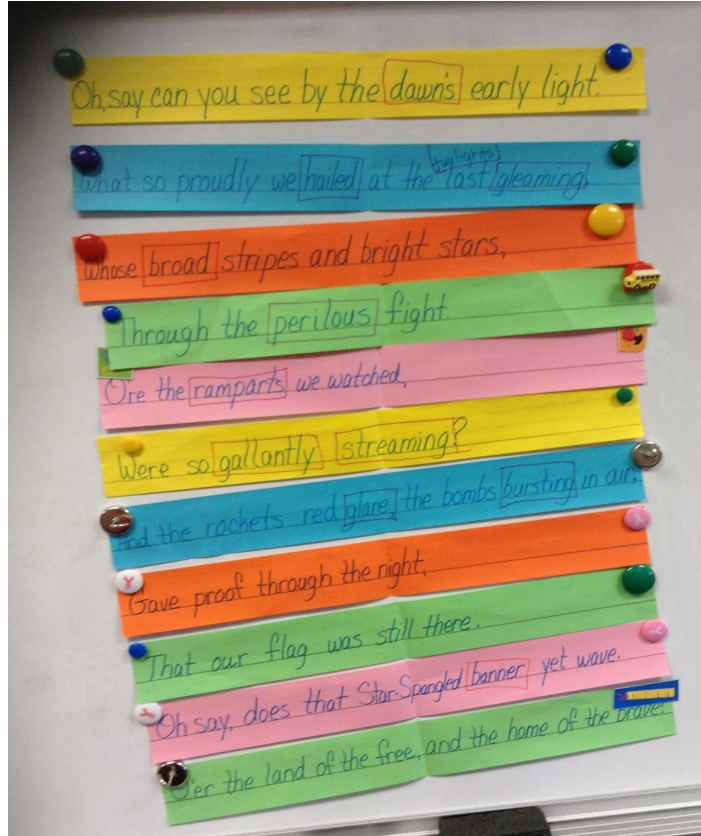 Oh, say can you see by the dawn's early light.
What so proudly we hailed at the twilights last gleaming,
Whose broad stripes and bright stars,
Through the perilous fight.
O're the ramparts we watched,
Were so gallantly streaming?
And the rockets red glare, the bombs bursting in air,
Gave proof through the night,
That our flag was still there.
Oh say, does that Star-Spangled banner yet wave.
O'er the land of the free, and the home of the brave!